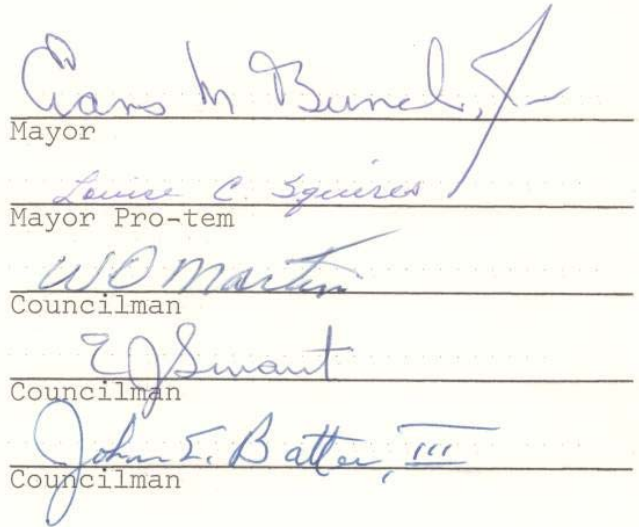 Evans M Bunch, Jr
Mayor
Louise C. Squires
Mayor Pro-tem
WO Martin
Councilman
E J Swant
Councilman
John E. Batten, III
Councilman